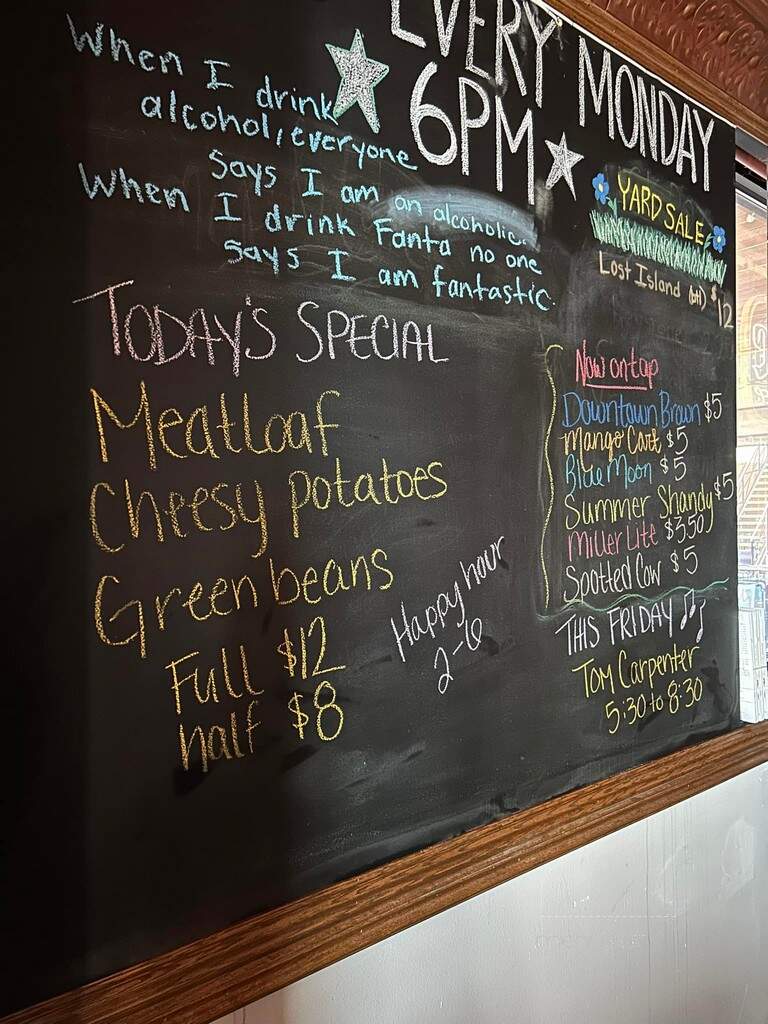 When I drink
alcohol, everyone
says I am an alcoholic.
When I drink Fanta no one
says I am fantastic.
EVERY MONDAY
6PM
YARD SALE
Lost Island (btl) $12
TODAY'S SPECIAL
Meatloaf
Cheesy potatoes
Green beans
Full $12
half $8
Happy hour
2-6
Now on tap
Downtown Brown $5
Mango Cart $5
Blue Moon $5
Summer Shandy $5
Miller Lite $3.50
Spotted Cow $5
THIS FRIDAY
Tom Carpenter
5:30 to 8:30